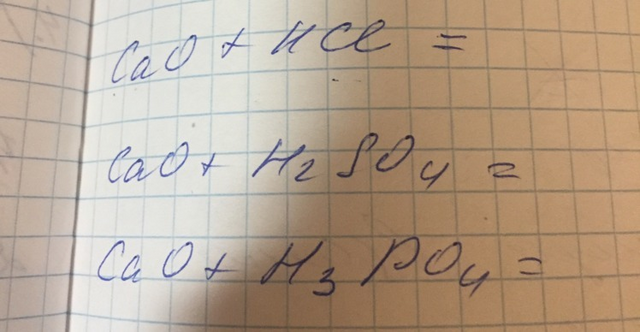 CaO + HCl =
CaO + H₂SO₄ =
CaO + H₃PO₄ =